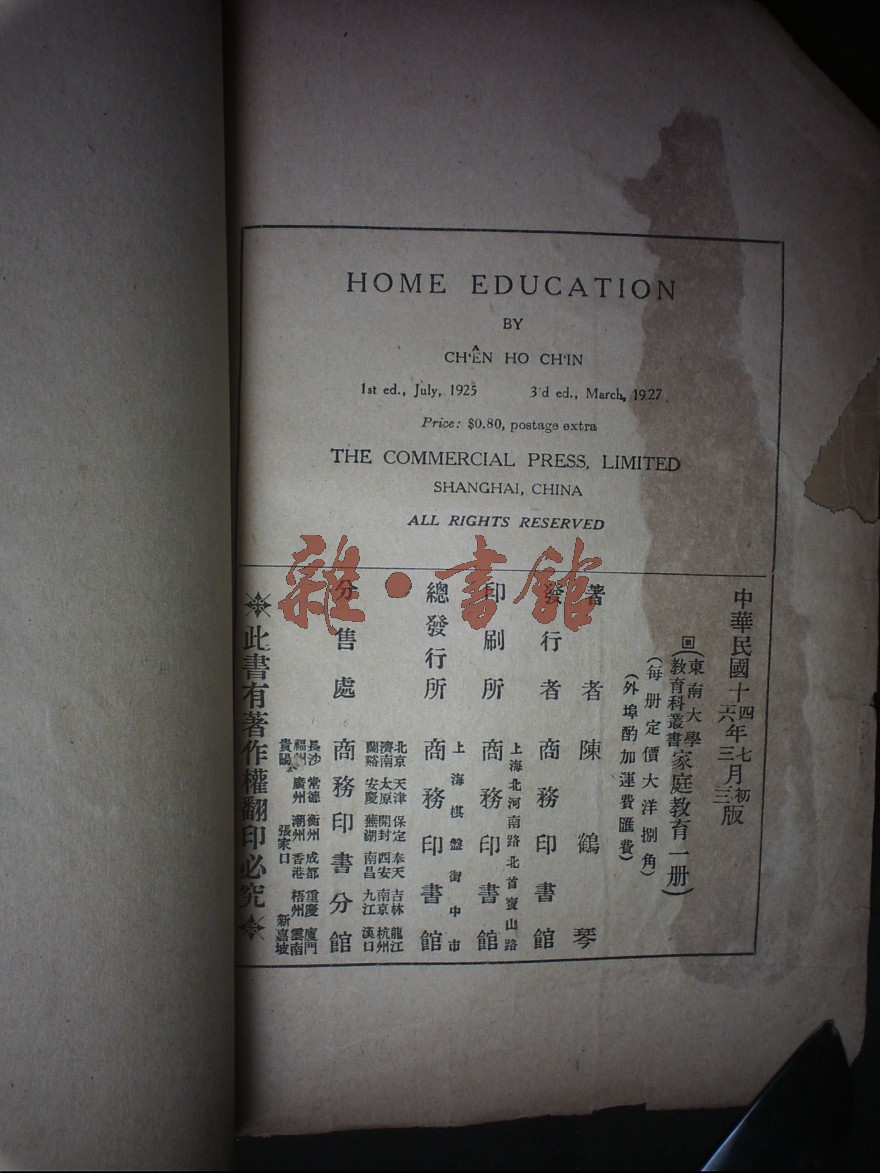 HOME EDUCATION
BY
CH'ÊN HO CH'IN
1st ed., July, 1925 3'd ed., March, 1927
Price: $0.80, postage extra
THE COMMERCIAL PRESS, LIMITED
SHANGHAI, CHINA
ALL RIGHTS RESERVED
雜·書館
中華民國十四年七月初版
六年三月三版
(東南大學教育科叢書 家庭教育一册)
(每册定價大洋捌角)
(外埠酌加運費匯費)
著者 陳鶴琴
發行者 商務印書館
上海北河南路北首寶山路
印刷所 商務印書館
上海棋盤街中市
總發行所 商務印書館
北京 天津 保定 奉天 吉林 龍江
濟南 太原 開封 西安 南京 杭州
蘭谿 安慶 蕪湖 南昌 九江 漢口
分售處 商務印書分館
長沙 常德 衡州 成都 重慶 廈門
福州 廣州 潮州 香港 梧州 雲南
貴陽 張家口 新嘉坡
此書有著作權翻印必究